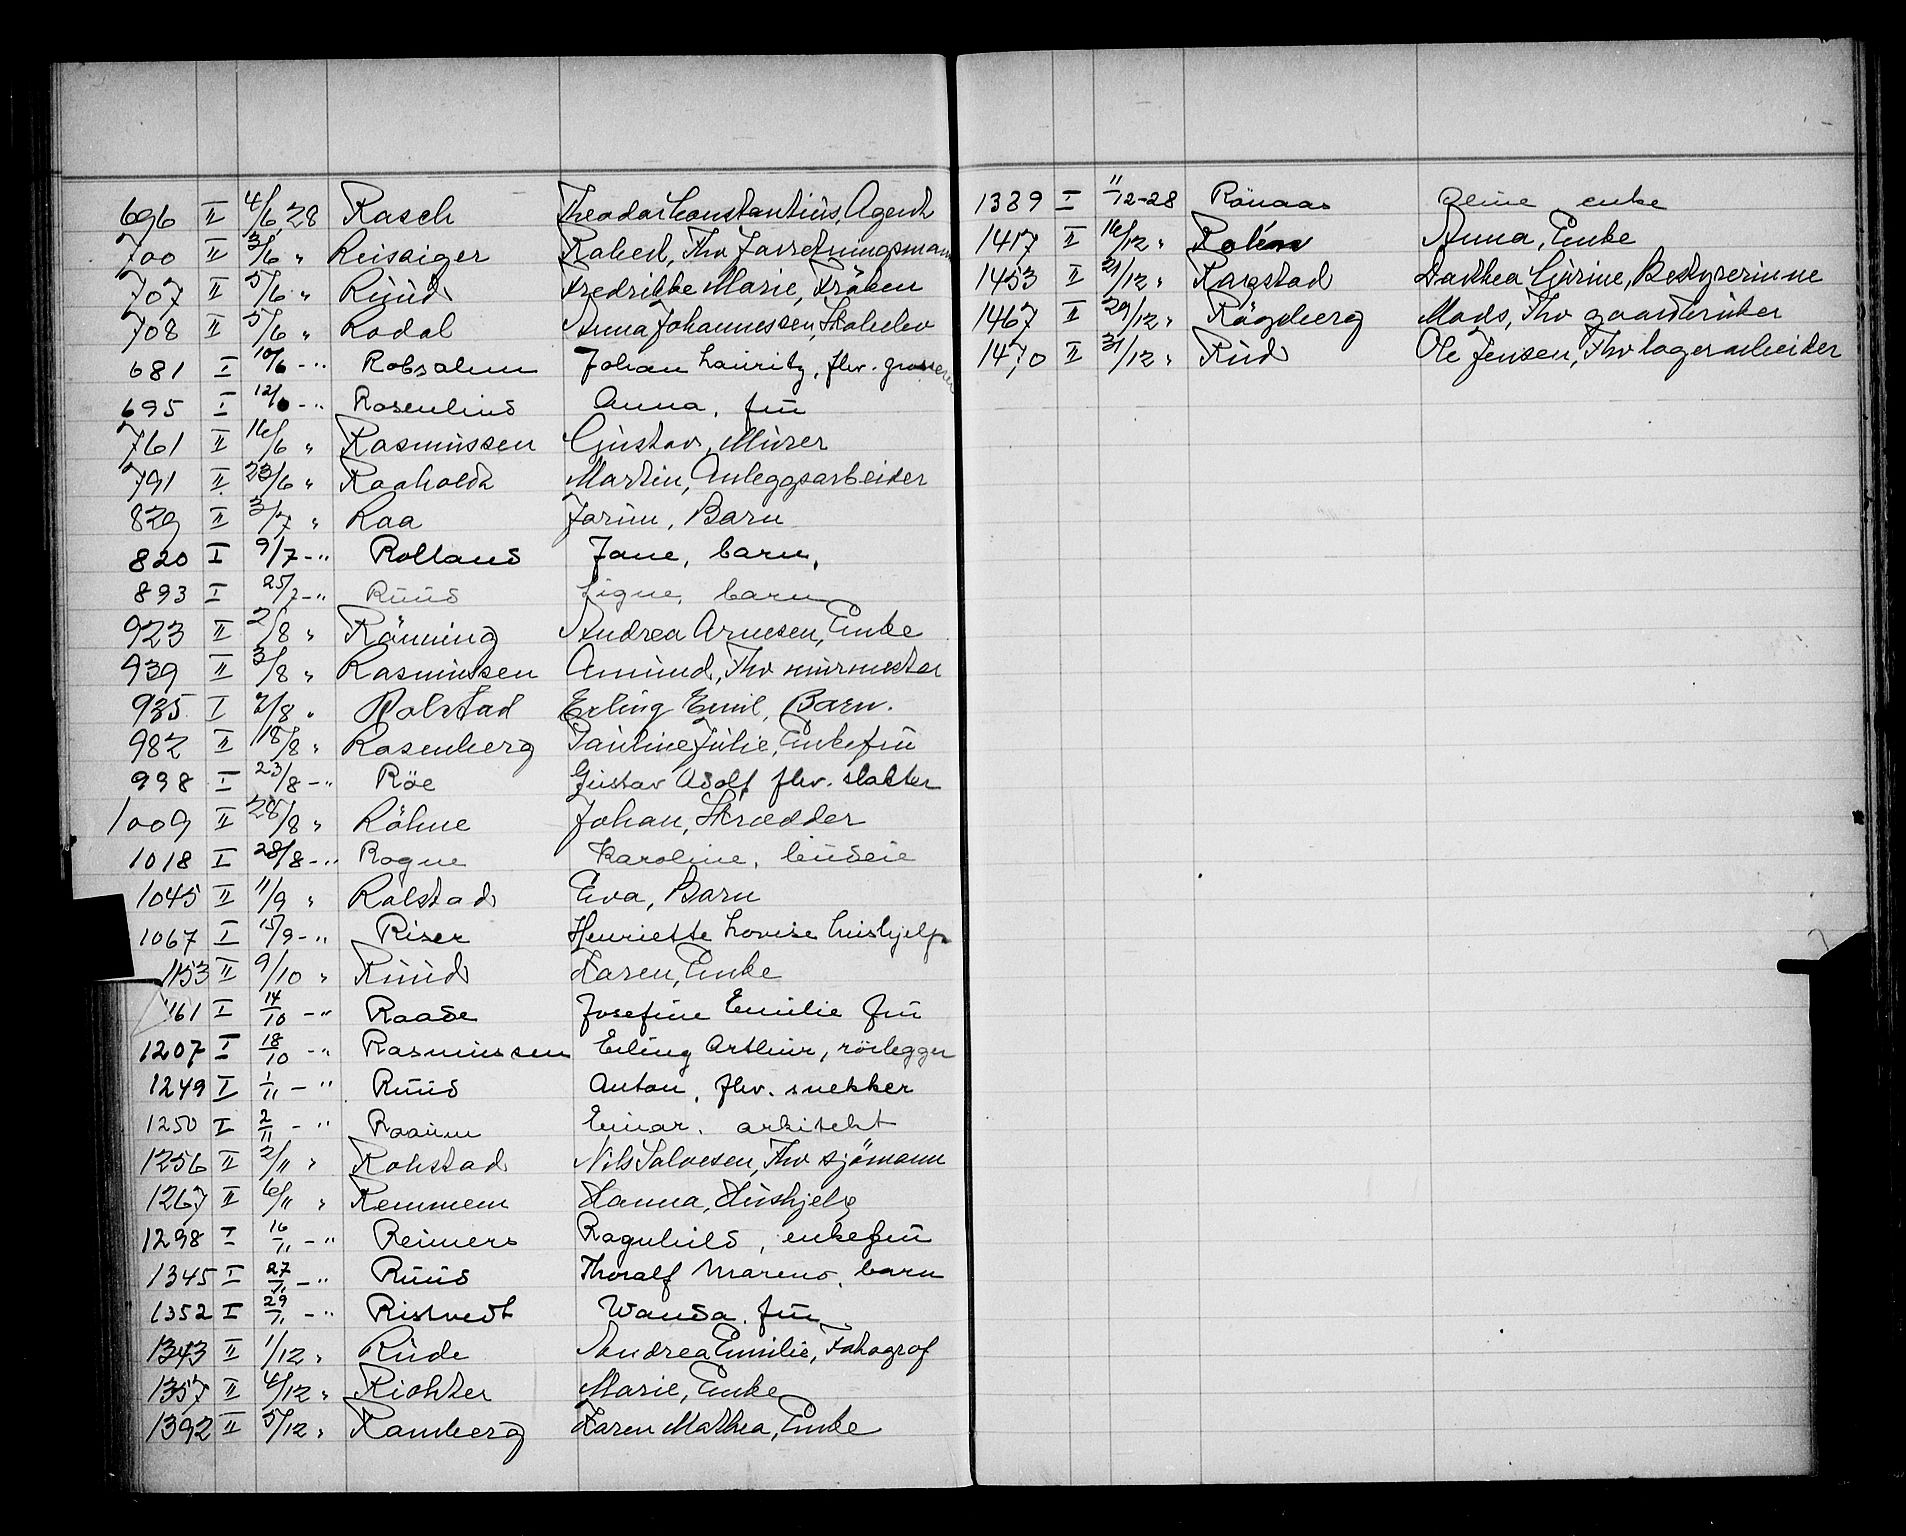 696 II 4/6 28 Rasch Theodor Constantius, Agent
700 II 3/6 " Reissiger Robert, Fhv Forretningsmann
707 II 5/6 " Ruud Fredrikke Marie, Fröken
708 II 5/6 " Rodal Anna Johannessen, Skoleelev
681 I 10/6 -" Robsahm Johan Lauritz, fhv. grosserer
695 I 12/6 -" Rosenlund Anna, fru
761 II 16/6 " Rasmussen Gustav, Murer
791 II 23/6 " Raaholdt Martin, Anleggsarbeider
829 II 3/7 " Raa Jorun, Barn
820 I 9/7 -" Rolland Jane, barn,
893 I 25/7 -" Ruud Signe, barn
923 II 2/8 " Rönning Andrea Arnesen, Enke
939 II 3/8 " Rasmussen Amund, Fhv murmester
935 I 2/8 " Rolstad Erling Emil, Barn.
982 II 18/8 " Rosenberg Pauline Julie, Enkefru
998 I 23/8 -" Röe Gustav Adolf fhv. slakter
1009 II 28/8 " Röhne Johan, Skredder
1018 I 28/8 -" Rogne Karoline, budeie
1045 II 11/9 " Rolstad Eva, Barn
1067 I 15/9 -" Riser Henriette Lovise hushjelp
1153 II 9/10 " Ruud Karen, Enke
1161 I 14/10 -" Raade Josefine Emilie fru
1207 I 18/10 -" Rasmussen Erling Arthur, rörlegger
1249 I 1/11 -" Ruud Anton, fhv. snekker
1250 I 2/11 -" Raaum Einar, arkitekt
1256 II 2/11 " Rokstad Nils Salvesen, Fhv sjömann
1267 II 6/11 " Remmem Hanna, Hushjelp
1298 I 16/11 -" Reimers Ragnhild, enkefru
1345 I 27/11 -" Ruud Thoralf Mareno, barn
1352 I 29/11 -" Ristvedt Wanda, fru
1343 II 1/12 " Rude Andrea Emilie, Fotograf
1357 II 4/12 " Richter Marie, Enke
1392 II 5/12 " Ramberg Karen Mathea, Enke
1389 I 11/12-28 Rönaas enke
1417 II 16/12 " Anna, Enke
1453 II 21/12 " Rogstad Dorthea Gurine, Bestyrerinne
1467 II 29/12 " Rögeberg Mads, Fhv gaardbruker
1470 II 31/12 " Rud Ole Jensen, Fhv lagerarbeider